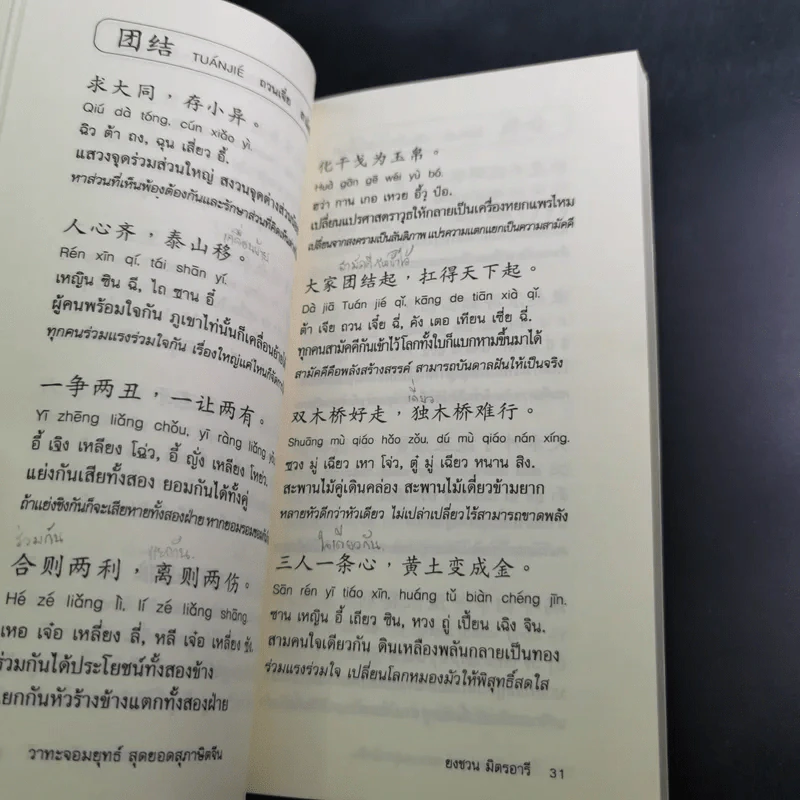 团结 TUÁNJIÉ ถวนเจี๋ย
求大同，存小异。
Qiú dà tóng, cún xiǎo yì.
ฉิว ต้า ถง, ฉุน เสี่ยว อี้.
แสวงจุดร่วมส่วนใหญ่ สงวนจุดต่างส่วนน้อย
หาส่วนที่เห็นพ้องต้องกันและรักษาส่วนที่คิดเห็น
เคลื่อนย้าย
人心齐，泰山移。
Rén xīn qí, tái shān yí.
เหญิน ซิน ฉี, ไถ ซาน อี๋
ผู้คนพร้อมใจกัน ภูเขาไท่นั้นก็เคลื่อนย้าย
ทุกคนร่วมแรงร่วมใจกัน เรื่องใหญ่แค่ไหนก็จัดการ
一争两丑，一让两有。
Yī zhēng liǎng chǒu, yī ràng liǎng yǒu.
อี้ เจิง เหลียง โฉ่ว, อี้ ญั่ง เหลียง โหย่ว
แย่งกันเสียทั้งสอง ยอมกันได้ทั้งคู่
ถ้าแย่งชิงกันก็จะเสียหายทั้งสองฝ่าย หากยอมรอมชอม
ร่วมกัน
合则两利，离则两伤。
Hé zé liǎng lì, lí zé liǎng shāng.
เหอ เจ๋อ เหลี่ยง ลี่, หลี เจ๋อ เหลี่ยง ซัง
ร่วมกันได้ประโยชน์ทั้งสองข้าง
ยกกันหัวร้างข้างแตกทั้งสองฝ่าย
วาทะจอมยุทธ์ สุดยอดสุภาษิตจีน
化干戈为玉帛。
Huà gān gē wéi yù bó.
ฮว่า กาน เกอ เหวย อวี้ ป๋อ.
เปลี่ยนแปรศาสตราวุธให้กลายเป็นเครื่องหยกแพรไหม
เปลี่ยนจากสงครามเป็นสันติภาพ แปรความแตกแยกเป็นความสามัคคี
大家团结起，扛得天下起。
Dà jiā Tuán jié qǐ, káng de tiān xià qǐ.
ต้า เจีย ถวน เจี๋ย ฉี่, คัง เตอ เทียน เซี่ย ฉี่.
ทุกคนสามัคคีกันเข้าไว้ โลกทั้งใบก็แบกหามขึ้นมาได้
สามัคคีคือพลังสร้างสรรค์ สามารถบันดาลฝันให้เป็นจริง
เดี่ยว
双木桥好走，独木桥难行。
Shuāng mù qiáo hǎo zǒu, dú mù qiáo nán xíng.
ซวง มู่ เฉียว เหา โจ่ว, ตู๋ มู่ เฉียว หนาน สิง.
สะพานไม้คู่เดินคล่อง สะพานไม้เดี่ยวข้ามยาก
หลายหัวดีกว่าหัวเดียว ไม่เปล่าเปลี่ยวไร้สามารถขาดพลัง
ใจเดียวกัน
三人一条心，黄土变成金。
Sān rén yī tiáo xīn, huáng tǔ biàn chéng jīn.
ซาน เหญิน อี้ เถียว ซิน, หวง ถู่ เปี้ยน เฉิง จิน.
สามคนใจเดียวกัน ดินเหลืองพลันกลายเป็นทอง
ร่วมแรงร่วมใจ เปลี่ยนโลกหมองมัวให้พิสุทธิ์สดใส
ยงชวน มิตรอารี 31